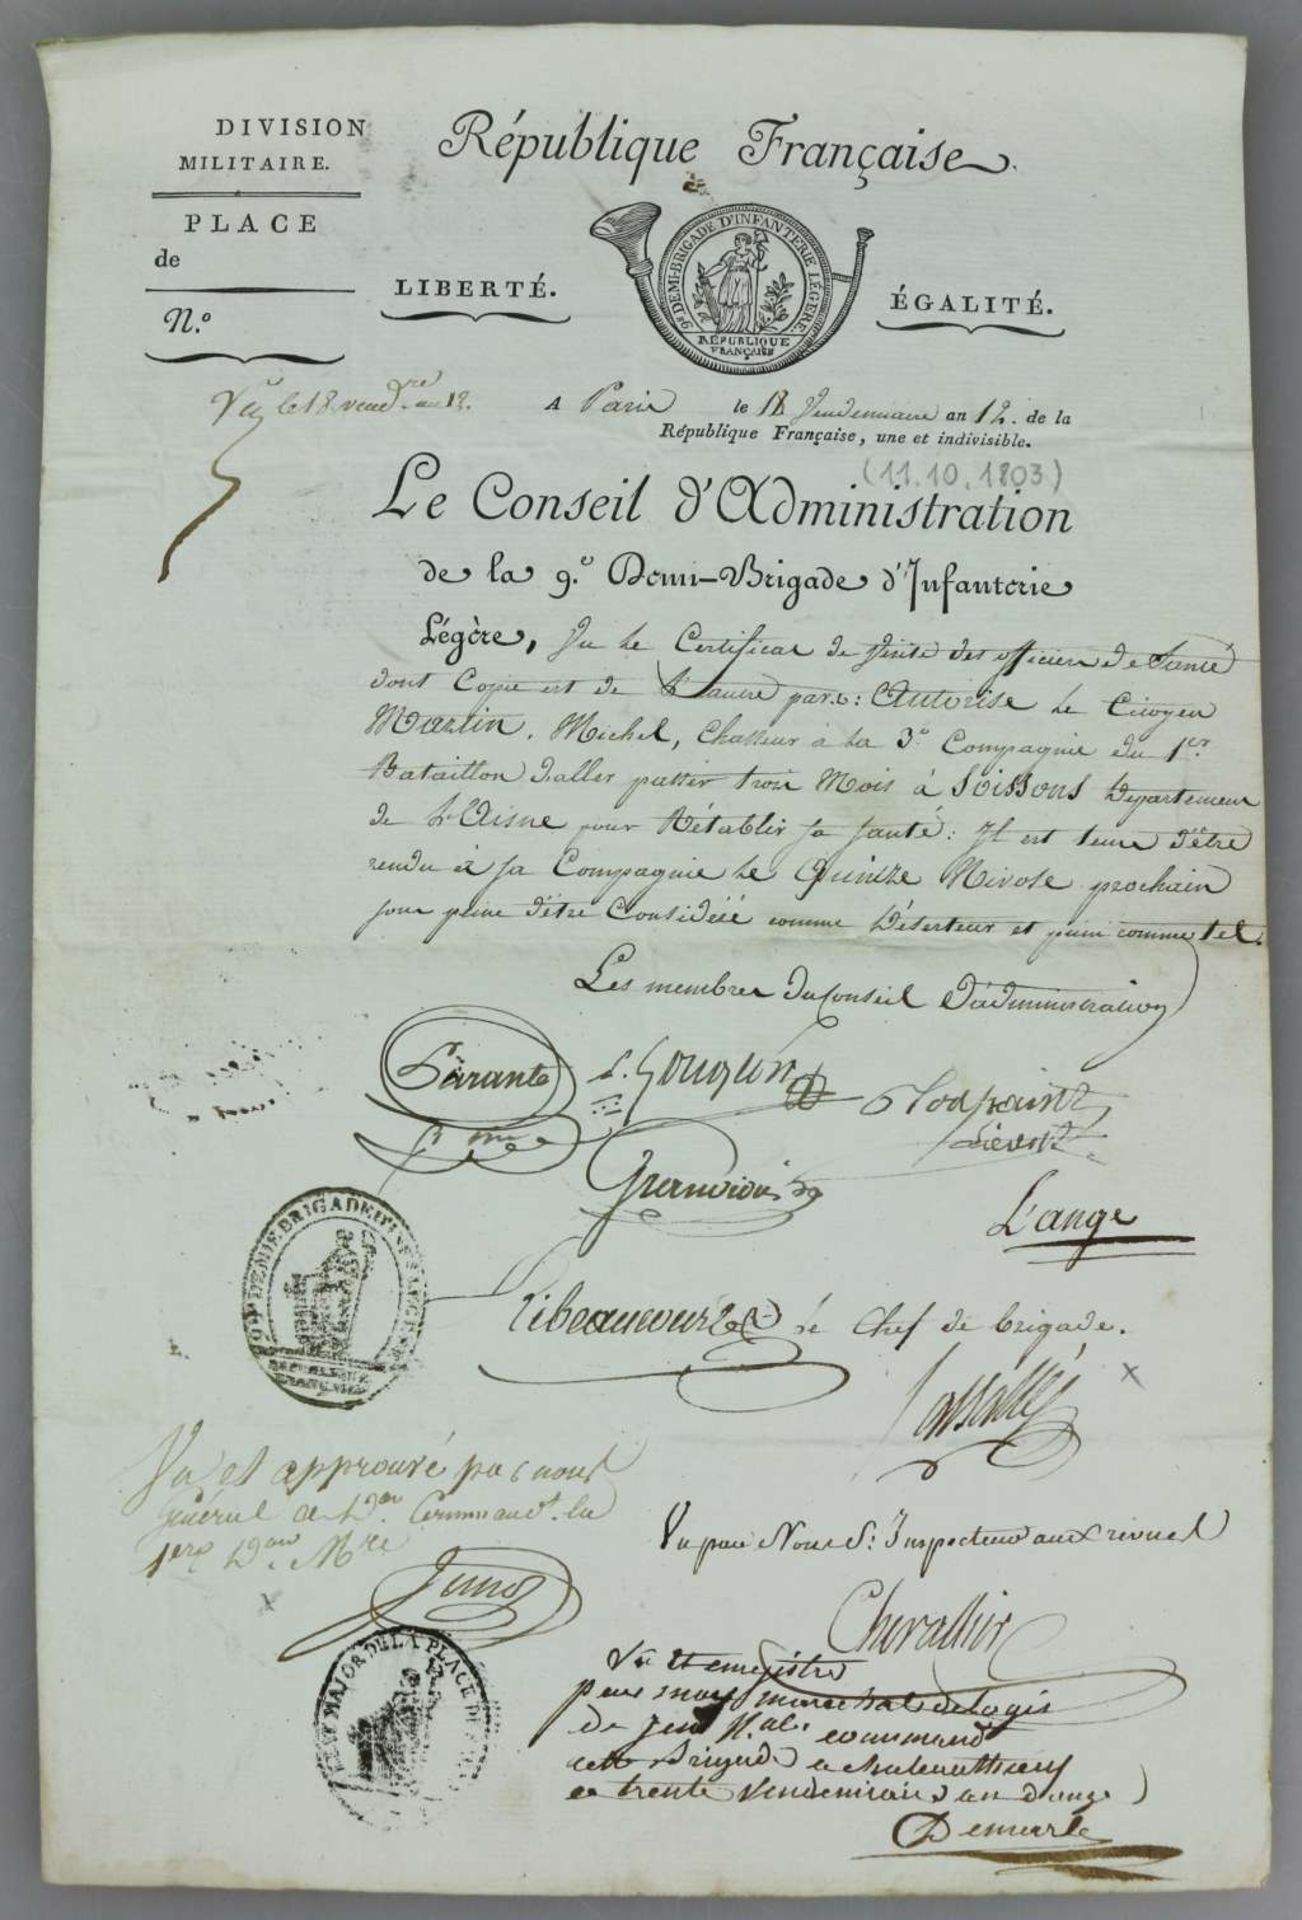 DIVISION
MILITAIRE.
PLACE
de
N.º
République Française.
LIBERTÉ.
9e DEMI-BRIGADE D'INFANTERIE LÉGÈRE.
RÉPUBLIQUE
FRANÇAISE
ÉGALITÉ.
Vu le 18 vendre an 12.
A Paris le 18 Vendemiaire an 12. de la
République Française, une et indivisible.
(11.10.1803)
Le Conseil d'Administration
de la 9.e Demi-Brigade d'Infanterie
Légère, Vu le Certificat de Visite des officiers de Santé
dont Copie est de l'autre part: Autorise le Citoyen
Martin, Michel, Chasseur à la 3e Compagnie du 1er
Bataillon d'aller passer trois Mois à Soissons Departement
de l'Aisne pour Rétablir sa santé: Il est tenu d'être
rendu à sa Compagnie le Quinze Nivose prochain
sous peine d'être Considéré comme Déserteur et puni comme tel.
Les membres du Conseil d'administration
L'ange
Ribeaucourt le Chef de brigade.
Vu et approuvé par nous
Général de Don. Commandt. la
1ere Don Mre
Junot
Vu par Nous S: Inspecteur aux revues
Chevallier
ETAT MAJOR DE LA PLACE DE
Vu et enregistré
par moy marechal delogis
de commend
cette Brigade
ce trente Vendemiaire an douze
Demarle